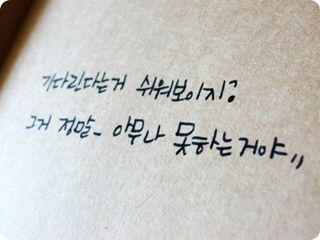 기다린다는거 쉬워보이지?
그거 정말- 아무나 못하는거야"